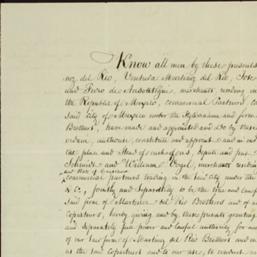 Know all men by these presents
nez del Rio, Ventura Martinez del Rio, Jose
and Pedro de Ansoategui, merchants residing in
the Republic of Mexico, commercial Partners
said City of Mexico under the and firm
Brothers, have made and appointed and do by these
ordain, authorise, constitute and appoint and in our
place and stead of each of us, depute and
Schmidt and William Vogel, merchants residing
commercial partners trading in the said City under the
& C., jointly and separately to be the true and lawful
said firm of Martinez del Rio Brothers and of
Copartners, hereby giving and by these presents granting
and separately full power and lawful authority for and
of our said firm of Martinez del Rio Brothers and
as the said Copartners and to our use, to